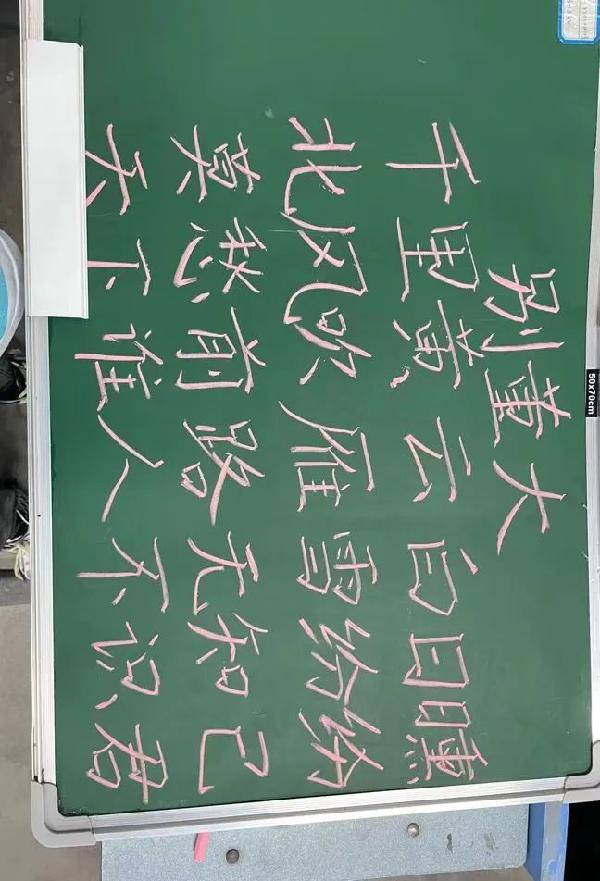 别董大
千里黄云白日曛
北风吹雁雪纷纷
莫愁前路无知己
天下谁人不识君
50x70cm